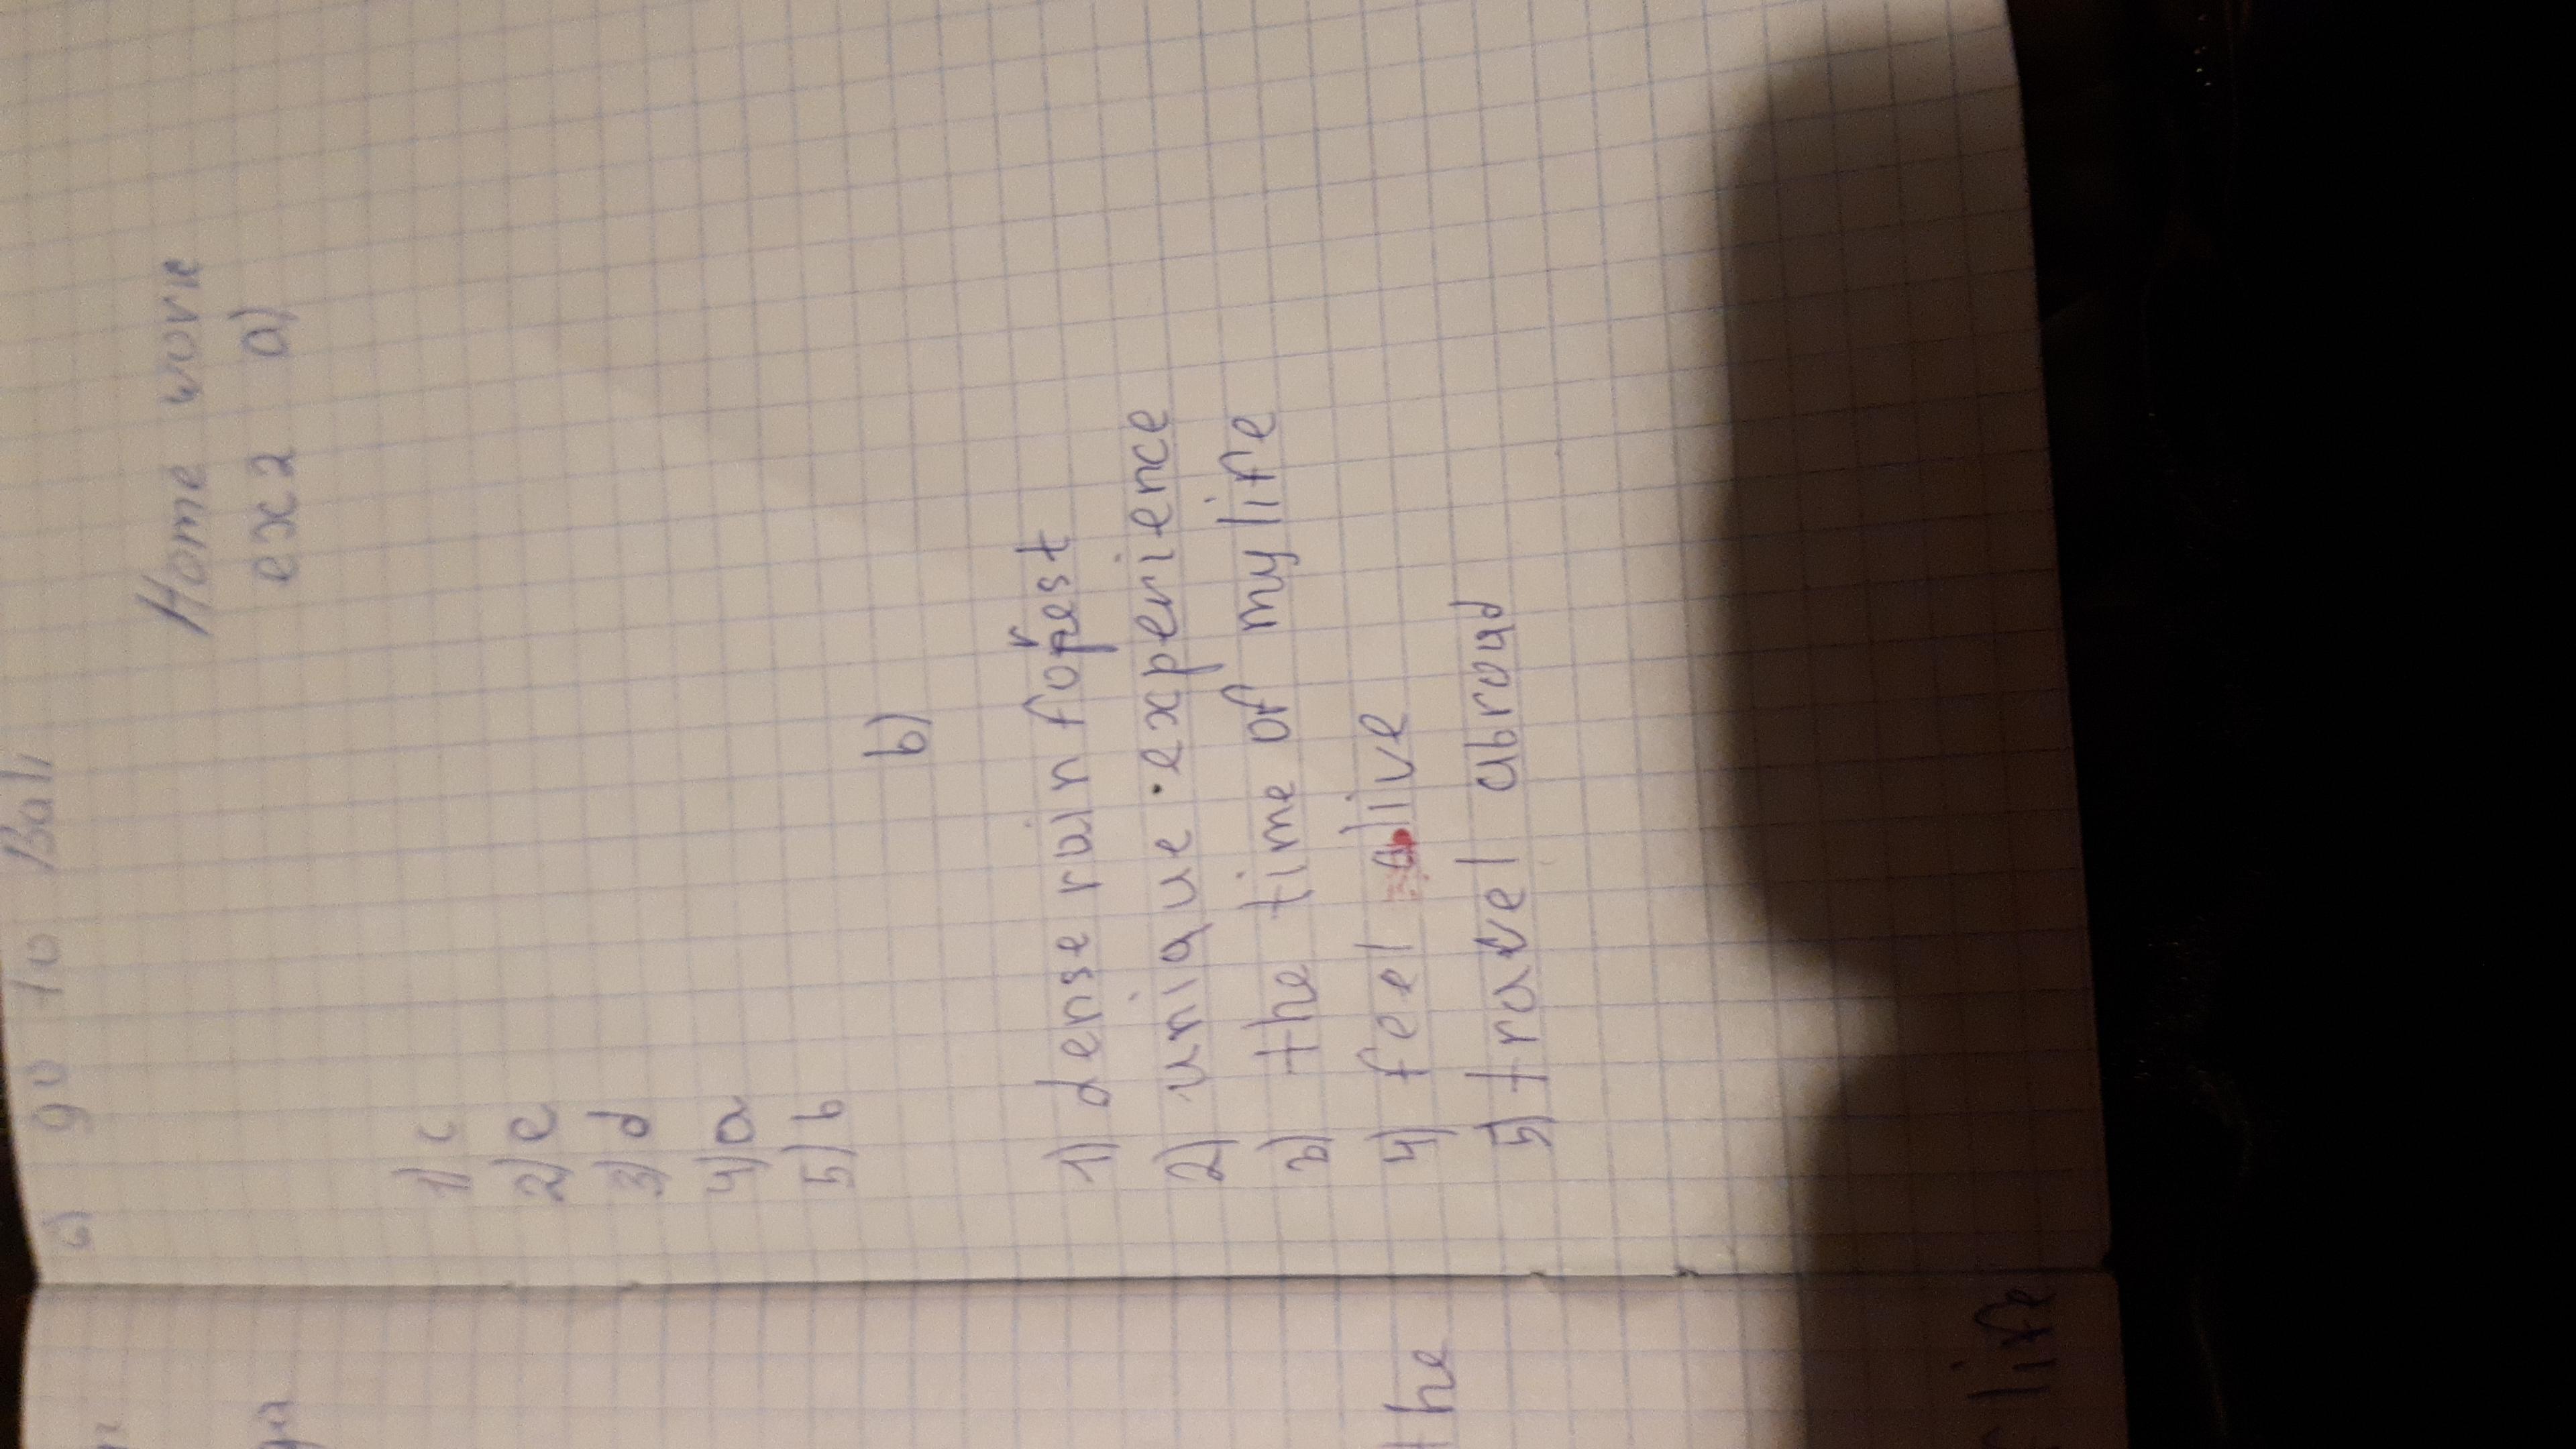 go to Bali
Home work
ex 2 a)
1) c
2) e
3) d
4) a
5) b
b)
1) dense rain forest
2) unique experience
3) the time of my life
4) feel alive
5) travel abroad
the
life